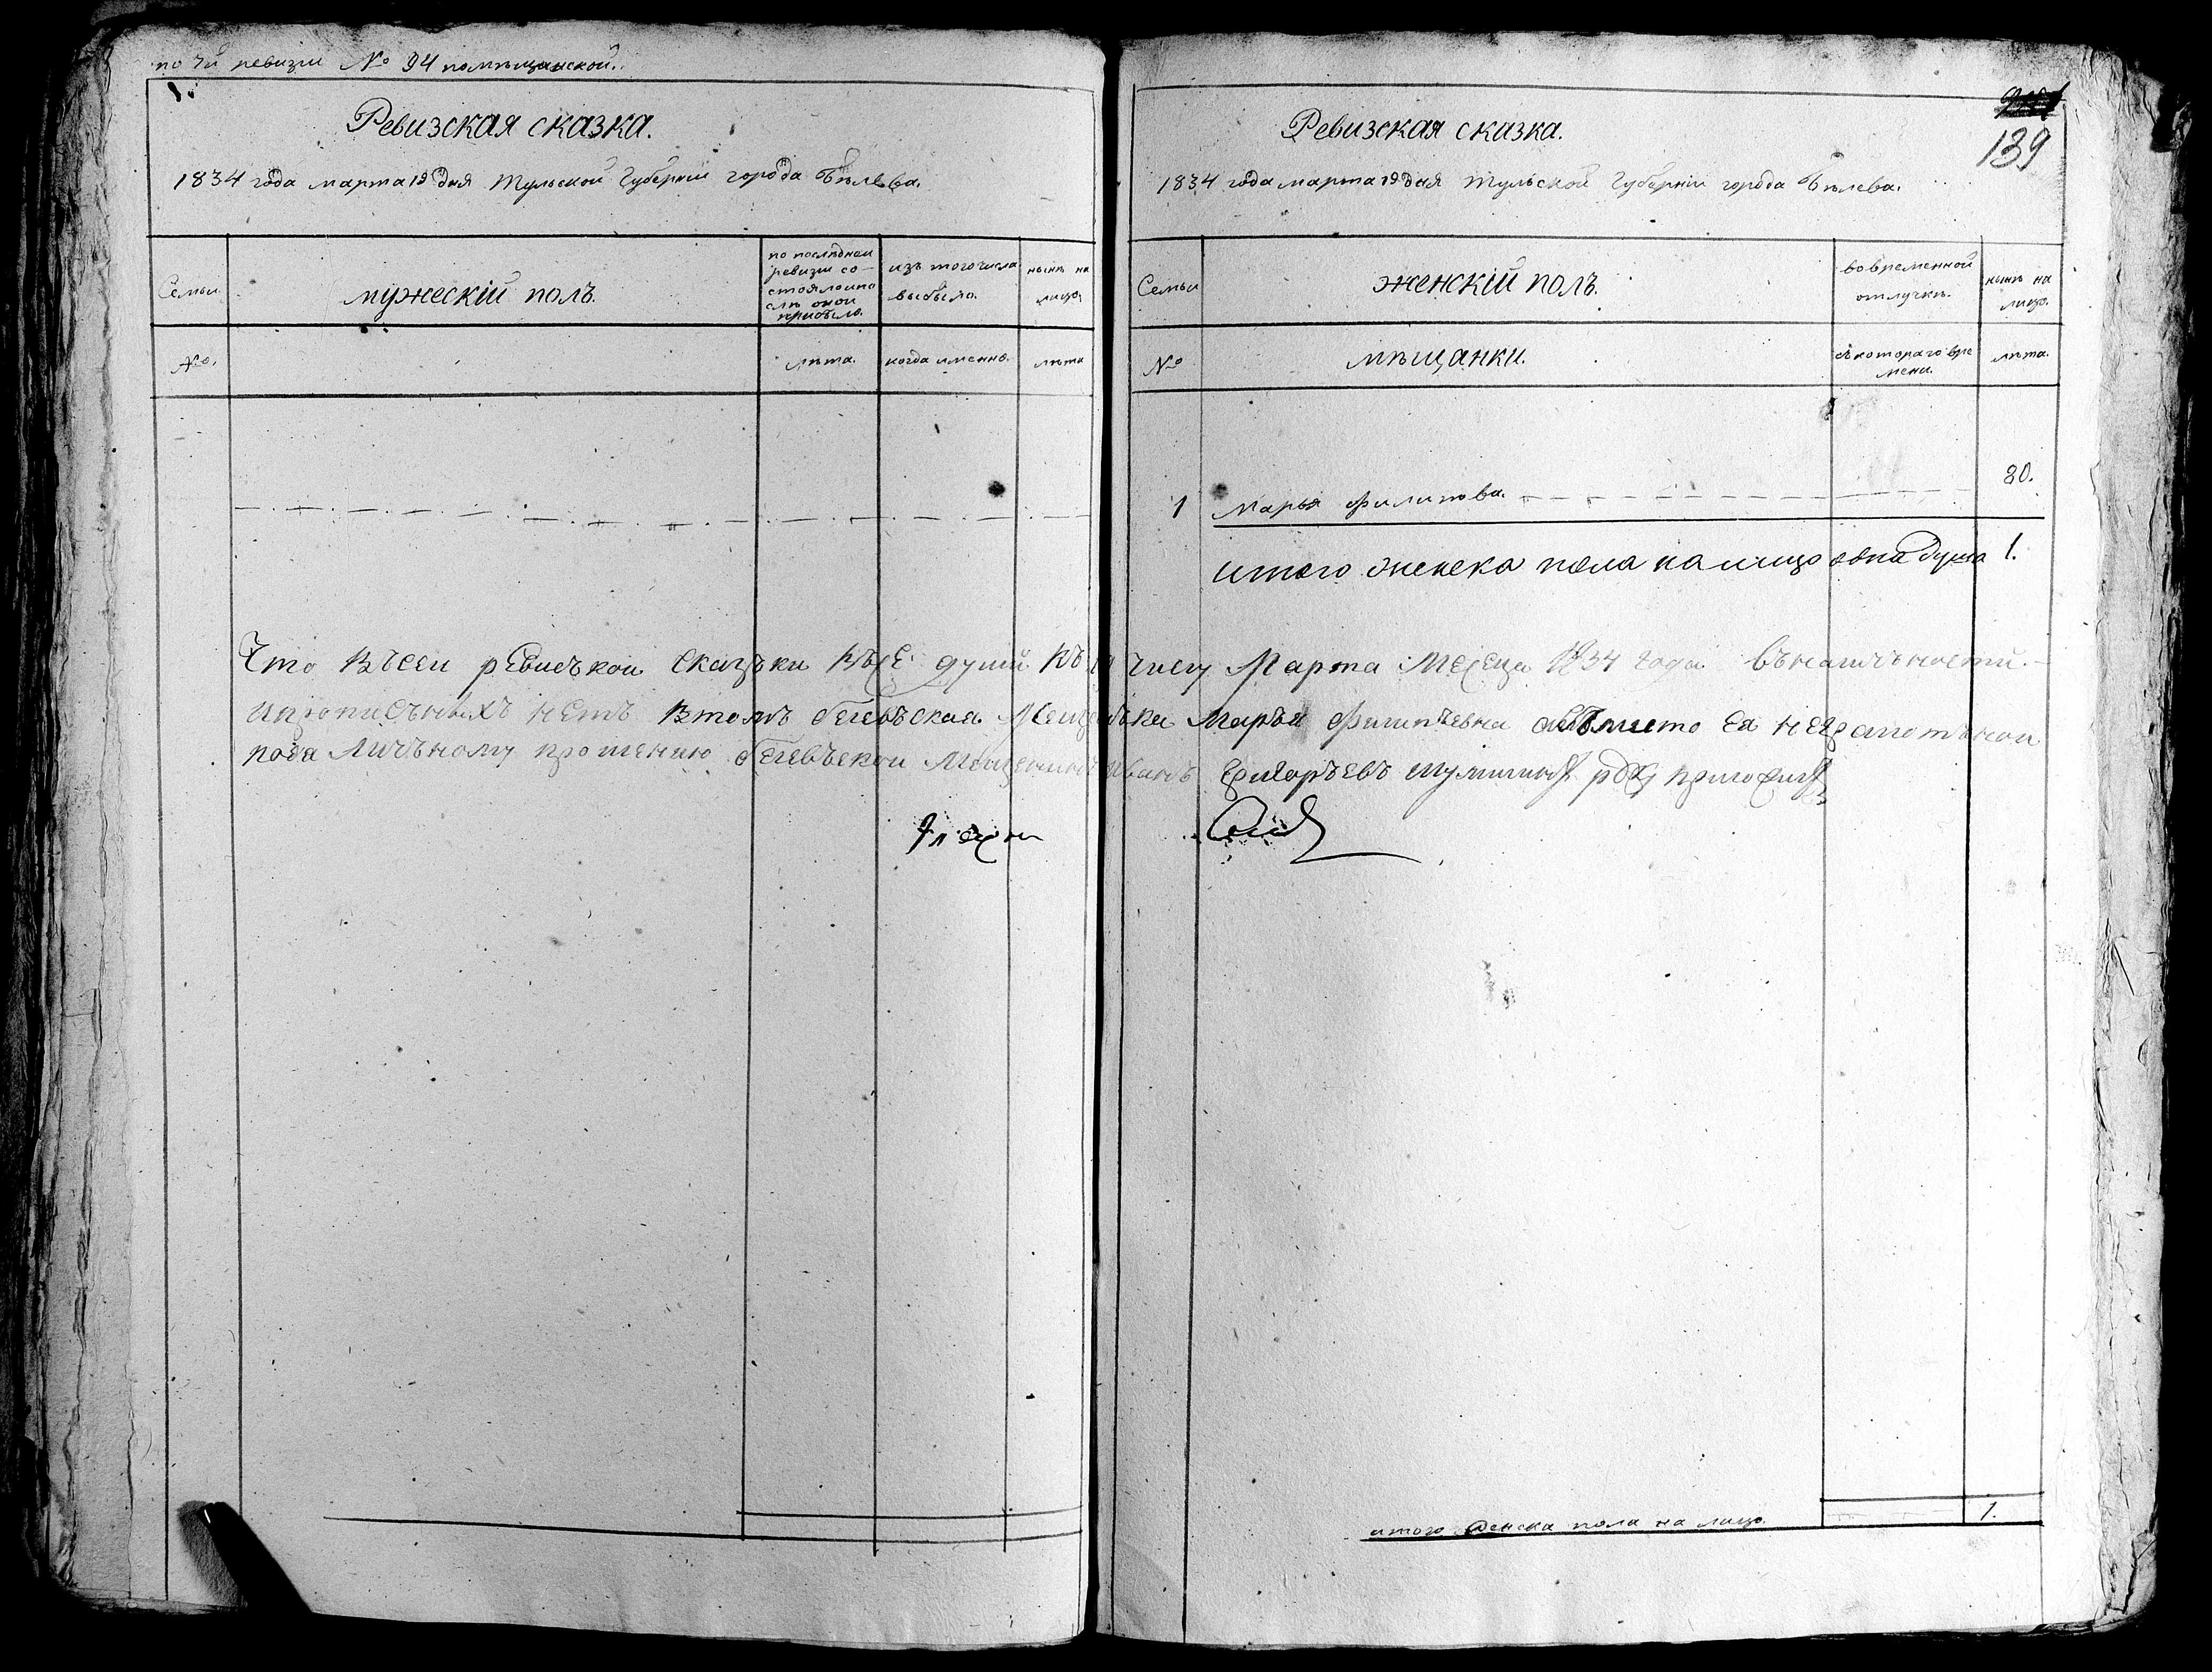 по 7й ревизіи № 94 по мѣщанской.
Ревизская сказка.
1834 года марта 19 дня Тульской Губерніи города Бѣлева.
Семьи
мужескій полъ.
по последней
ревизіи со-
стояло и по
слѣ оной
прибыло.
изъ того числа
выбыло.
нынѣ на
лицо.
№.
лѣта.
когда именно.
лѣта
139
Ревизская сказка.
1834 года марта 19 дня Тульской Губерніи города Бѣлева.
Семьи
женскій полъ.
во временной
отлучкѣ.
нынѣ на
лицо.
№
мѣщанки.
съ котораго вре
мени.
лѣта.
1 Марья Филипова. 80.
итого женска пола на лицо одна душа 1.
Что въсеи ревиской скаски въсе души къ 19 числу Марта Месеца 1834 года въналичъности
ипрописъныхъ нетъ втомъ белевъская Мещанъка Маръя Филипьевна авместо ея неграмотънои
поея личъному прошению белевъскои Мещенинъ Иванъ Григоръевъ руку приложилъ
итого женска пола на лицо. 1.